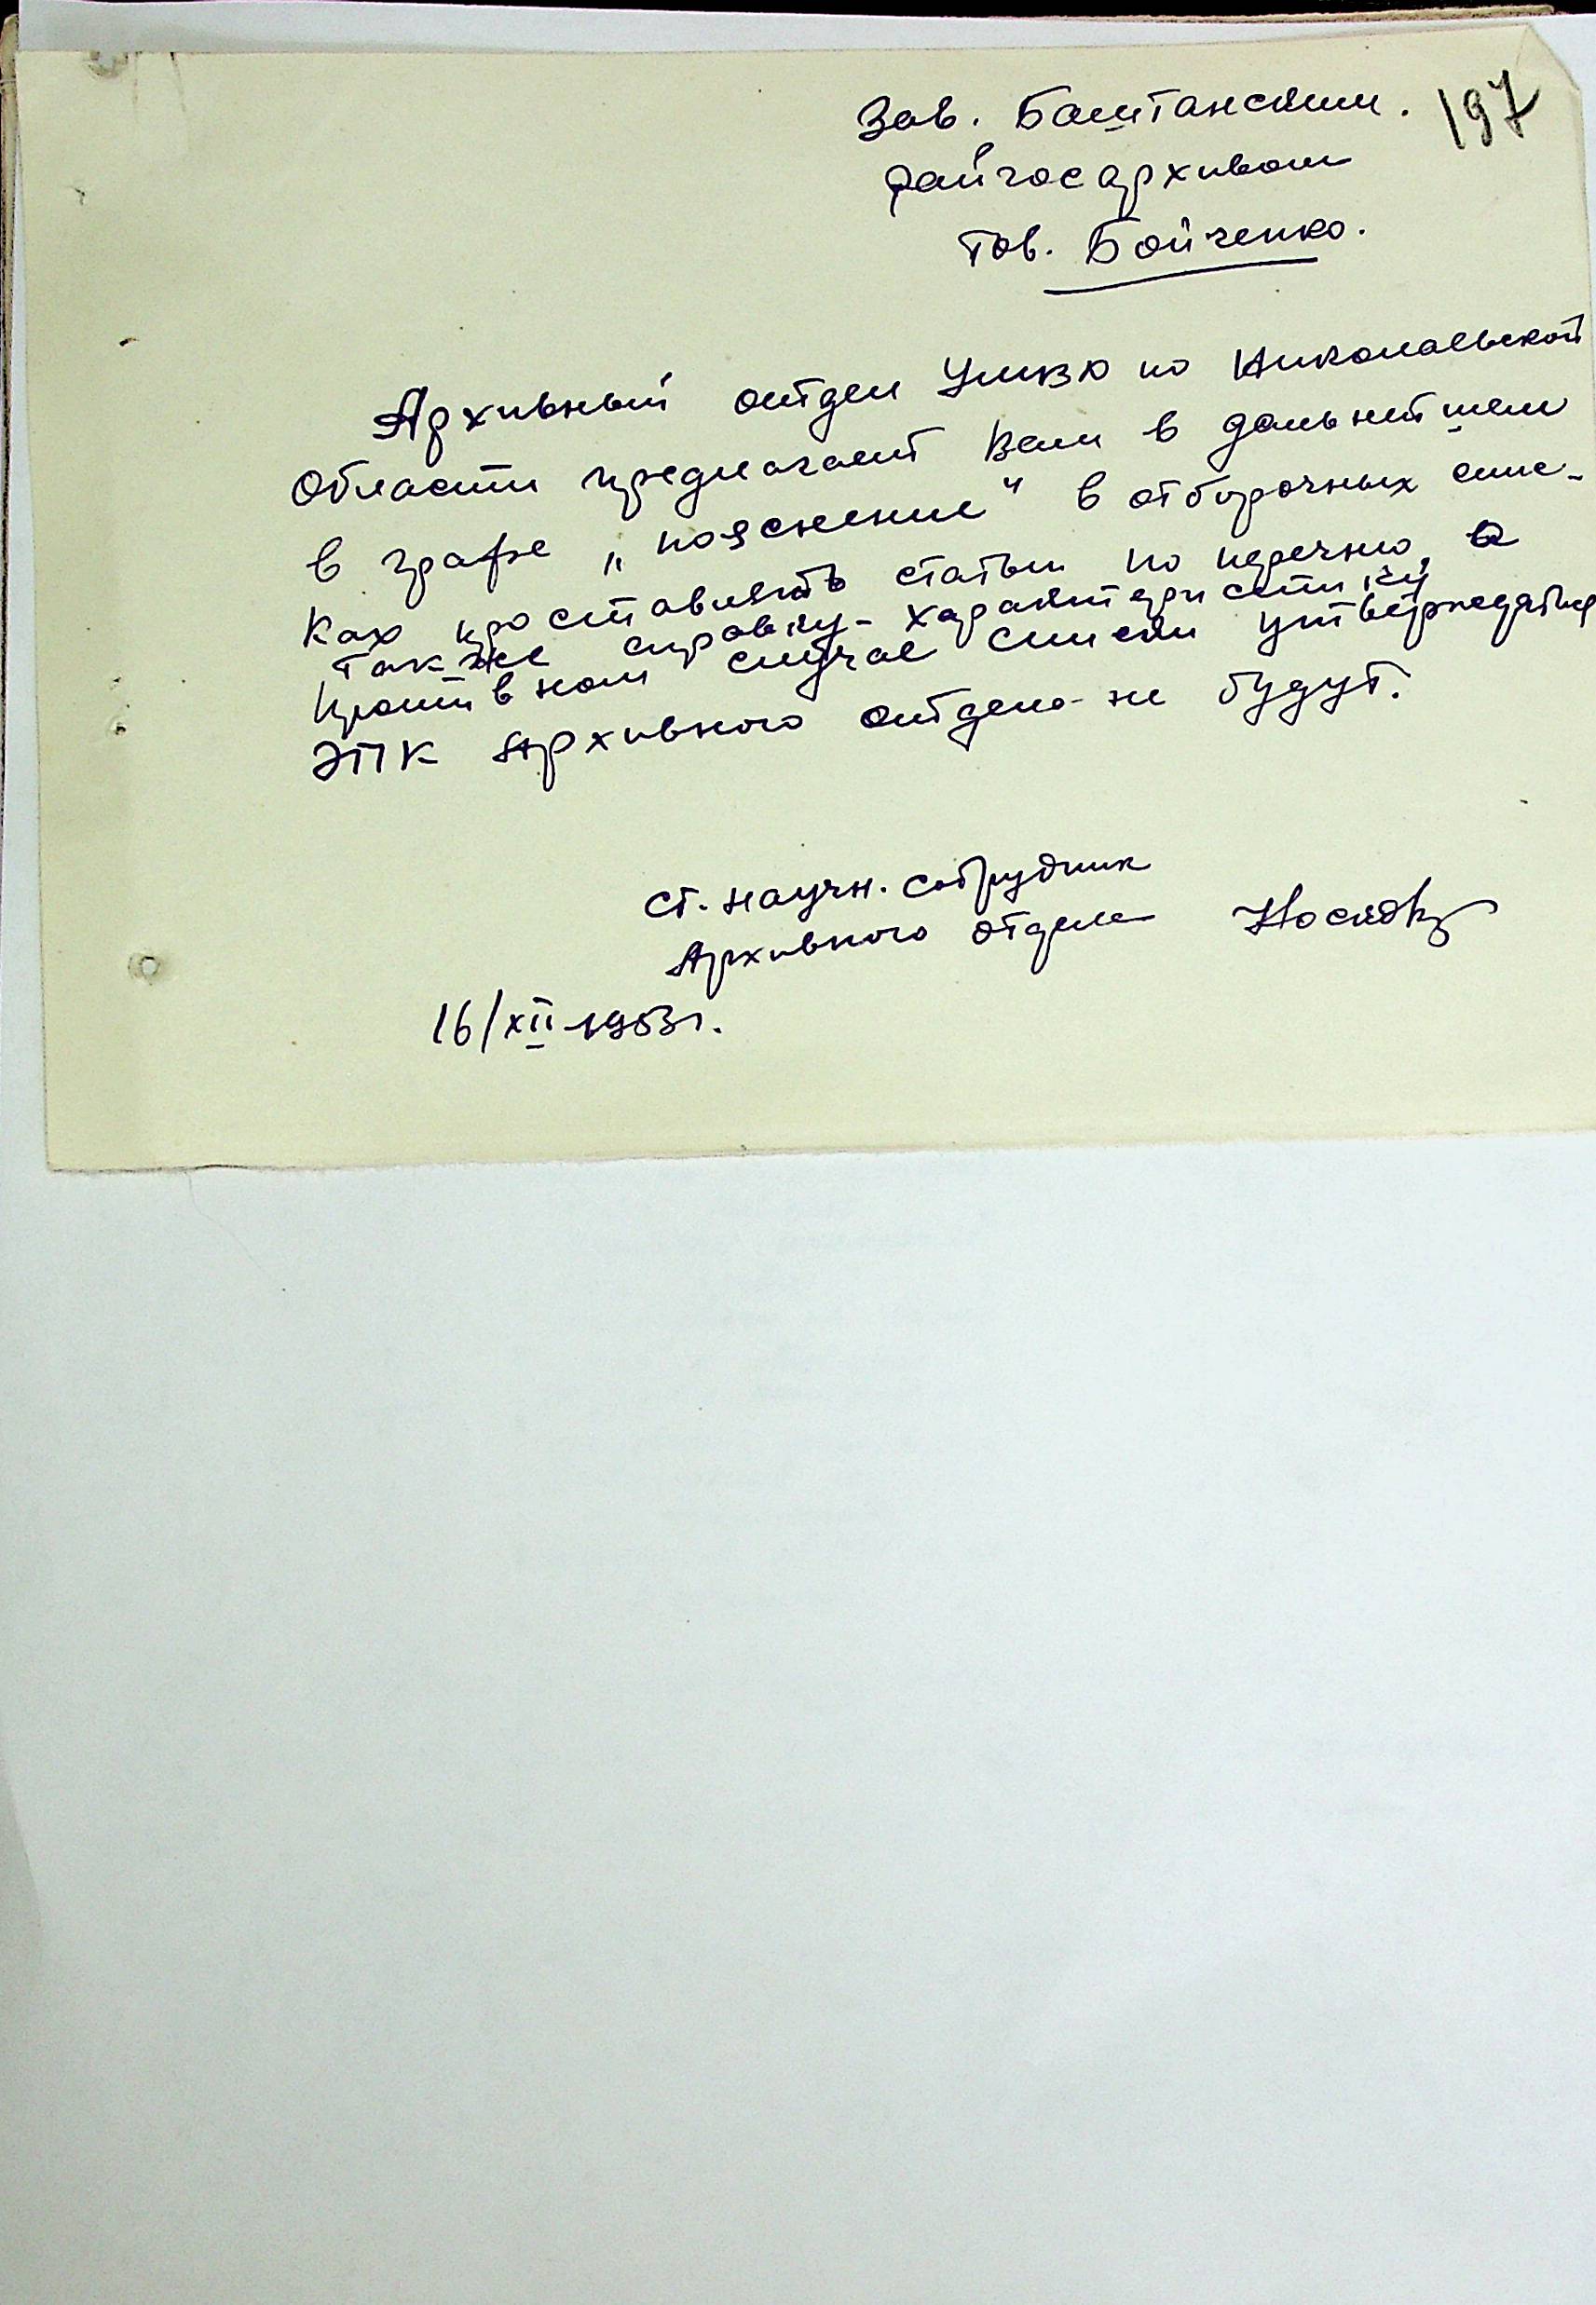 Зав. Баштанским.
197
райгосархивом
тов. Бойченко.
Архивный отдел УМВД по Николаевской
области предлагает Вам в дальнейшем
в графе „пояснение“ в отборочных спис-
ках проставлять статьи по перечню, а
также справку-характеристику
противном случае списки утверждаться
ЭПК Архивного отдела не будут.
ст. научн. сотрудник
Архивного отдела
16/XII-1953г.